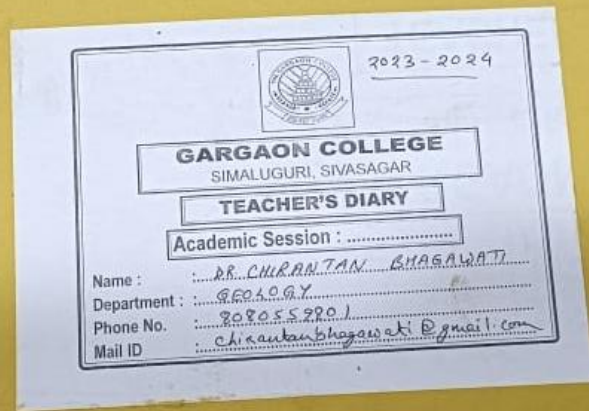 2023-2024
GARGAON COLLEGE
SIMALUGURI, SIVASAGAR
TEACHER'S DIARY
Academic Session : ....................
Name : DR CHIRANTAN BHAGAWATI
Department : GEOLOGY
Phone No. : 8080559801
Mail ID : chirantanbhagawati@gmail.com